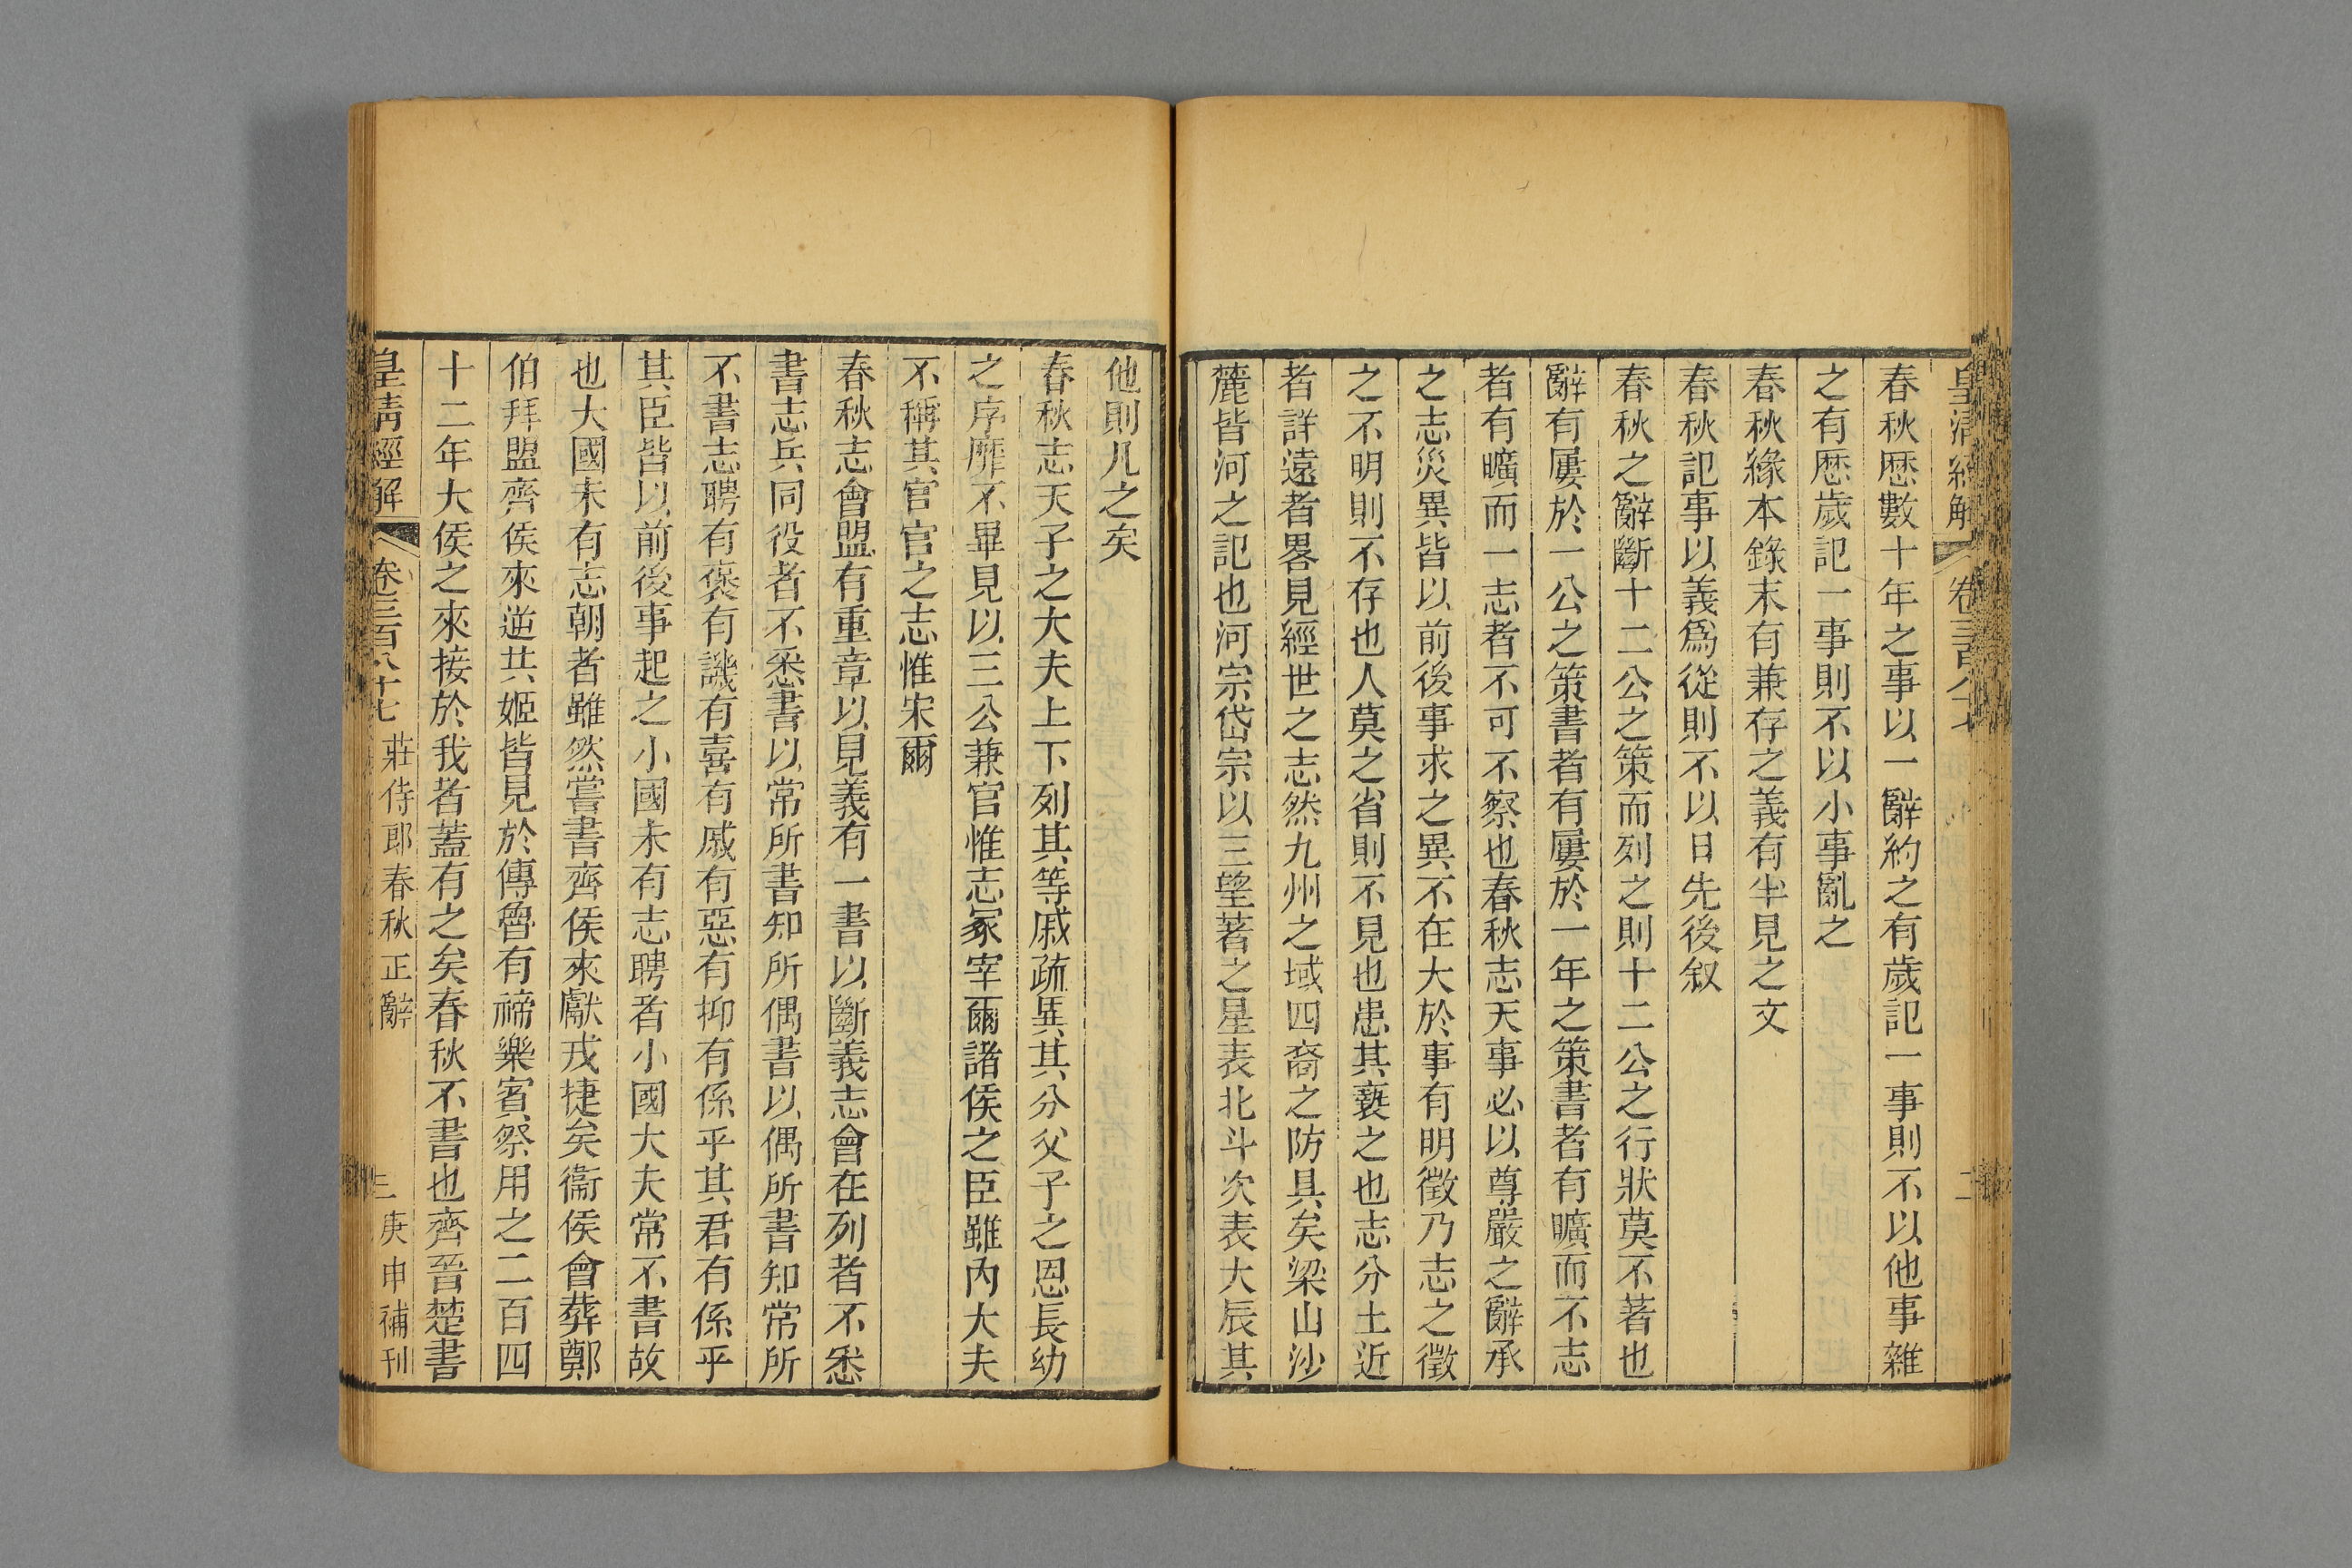 皇清經解 卷三百八十七 二
春秋歷數十年之事以一辭約之有歲記一事則不以他事雜
之有歷歲記一事則不以小事亂之
春秋緣本錄末有兼存之義有半見之文
春秋記事以義爲從則不以日先後叙
春秋之辭斷十二公之策而列之則十二公之行狀莫不著也
辭有屢於一公之策書者有屢於一年之策書者有曠而不志
者有曠而一志者不可不察也春秋志天事必以尊嚴之辭承
之志災異皆以前後事求之異不在大於事有明徵乃志之徵
之不明則不存也人莫之省則不見也患其褻之也志分土近
者詳遠者畧見經世之志然九州之域四裔之防具矣梁山沙
麓皆河之記也河宗岱宗以三望著之星表北斗次表大辰其
他則凡之矣
春秋志天子之大夫上下列其等戚疏異其分父子之恩長幼
之序靡不畢見以三公兼官惟志冢宰爾諸侯之臣雖內大夫
不稱其官官之志惟宋爾
春秋志會盟有重章以見義有一書以斷義志會在列者不悉
書志兵同役者不悉書以常所書知所偶書以偶所書知常所
不書志聘有褒有譏有喜有戚有惡有抑有係乎其君有係乎
其臣皆以前後事起之小國未有志聘者小國大夫常不書故
也大國未有志朝者雖然嘗書齊侯來獻戎捷矣衞侯會葬鄭
伯拜盟齊侯來逆共姬皆見於傳魯有禘樂賓祭用之二百四
十二年大侯之來接於我者蓋有之矣春秋不書也齊晉楚書
皇清經解 卷三百八十七 莊侍郎春秋正辭 三 庚申補刊